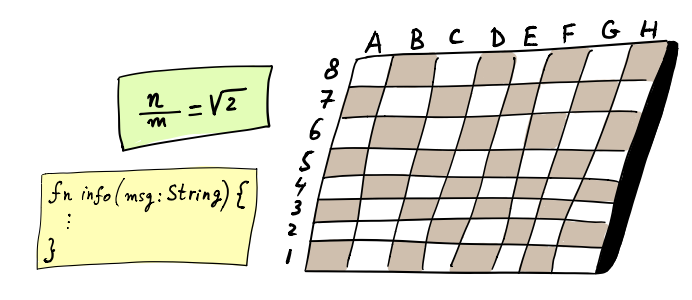 n/m = √2
fn info(msg: String) {
⋮
}
A B C D E F G H
8
7
6
5
4
3
2
1